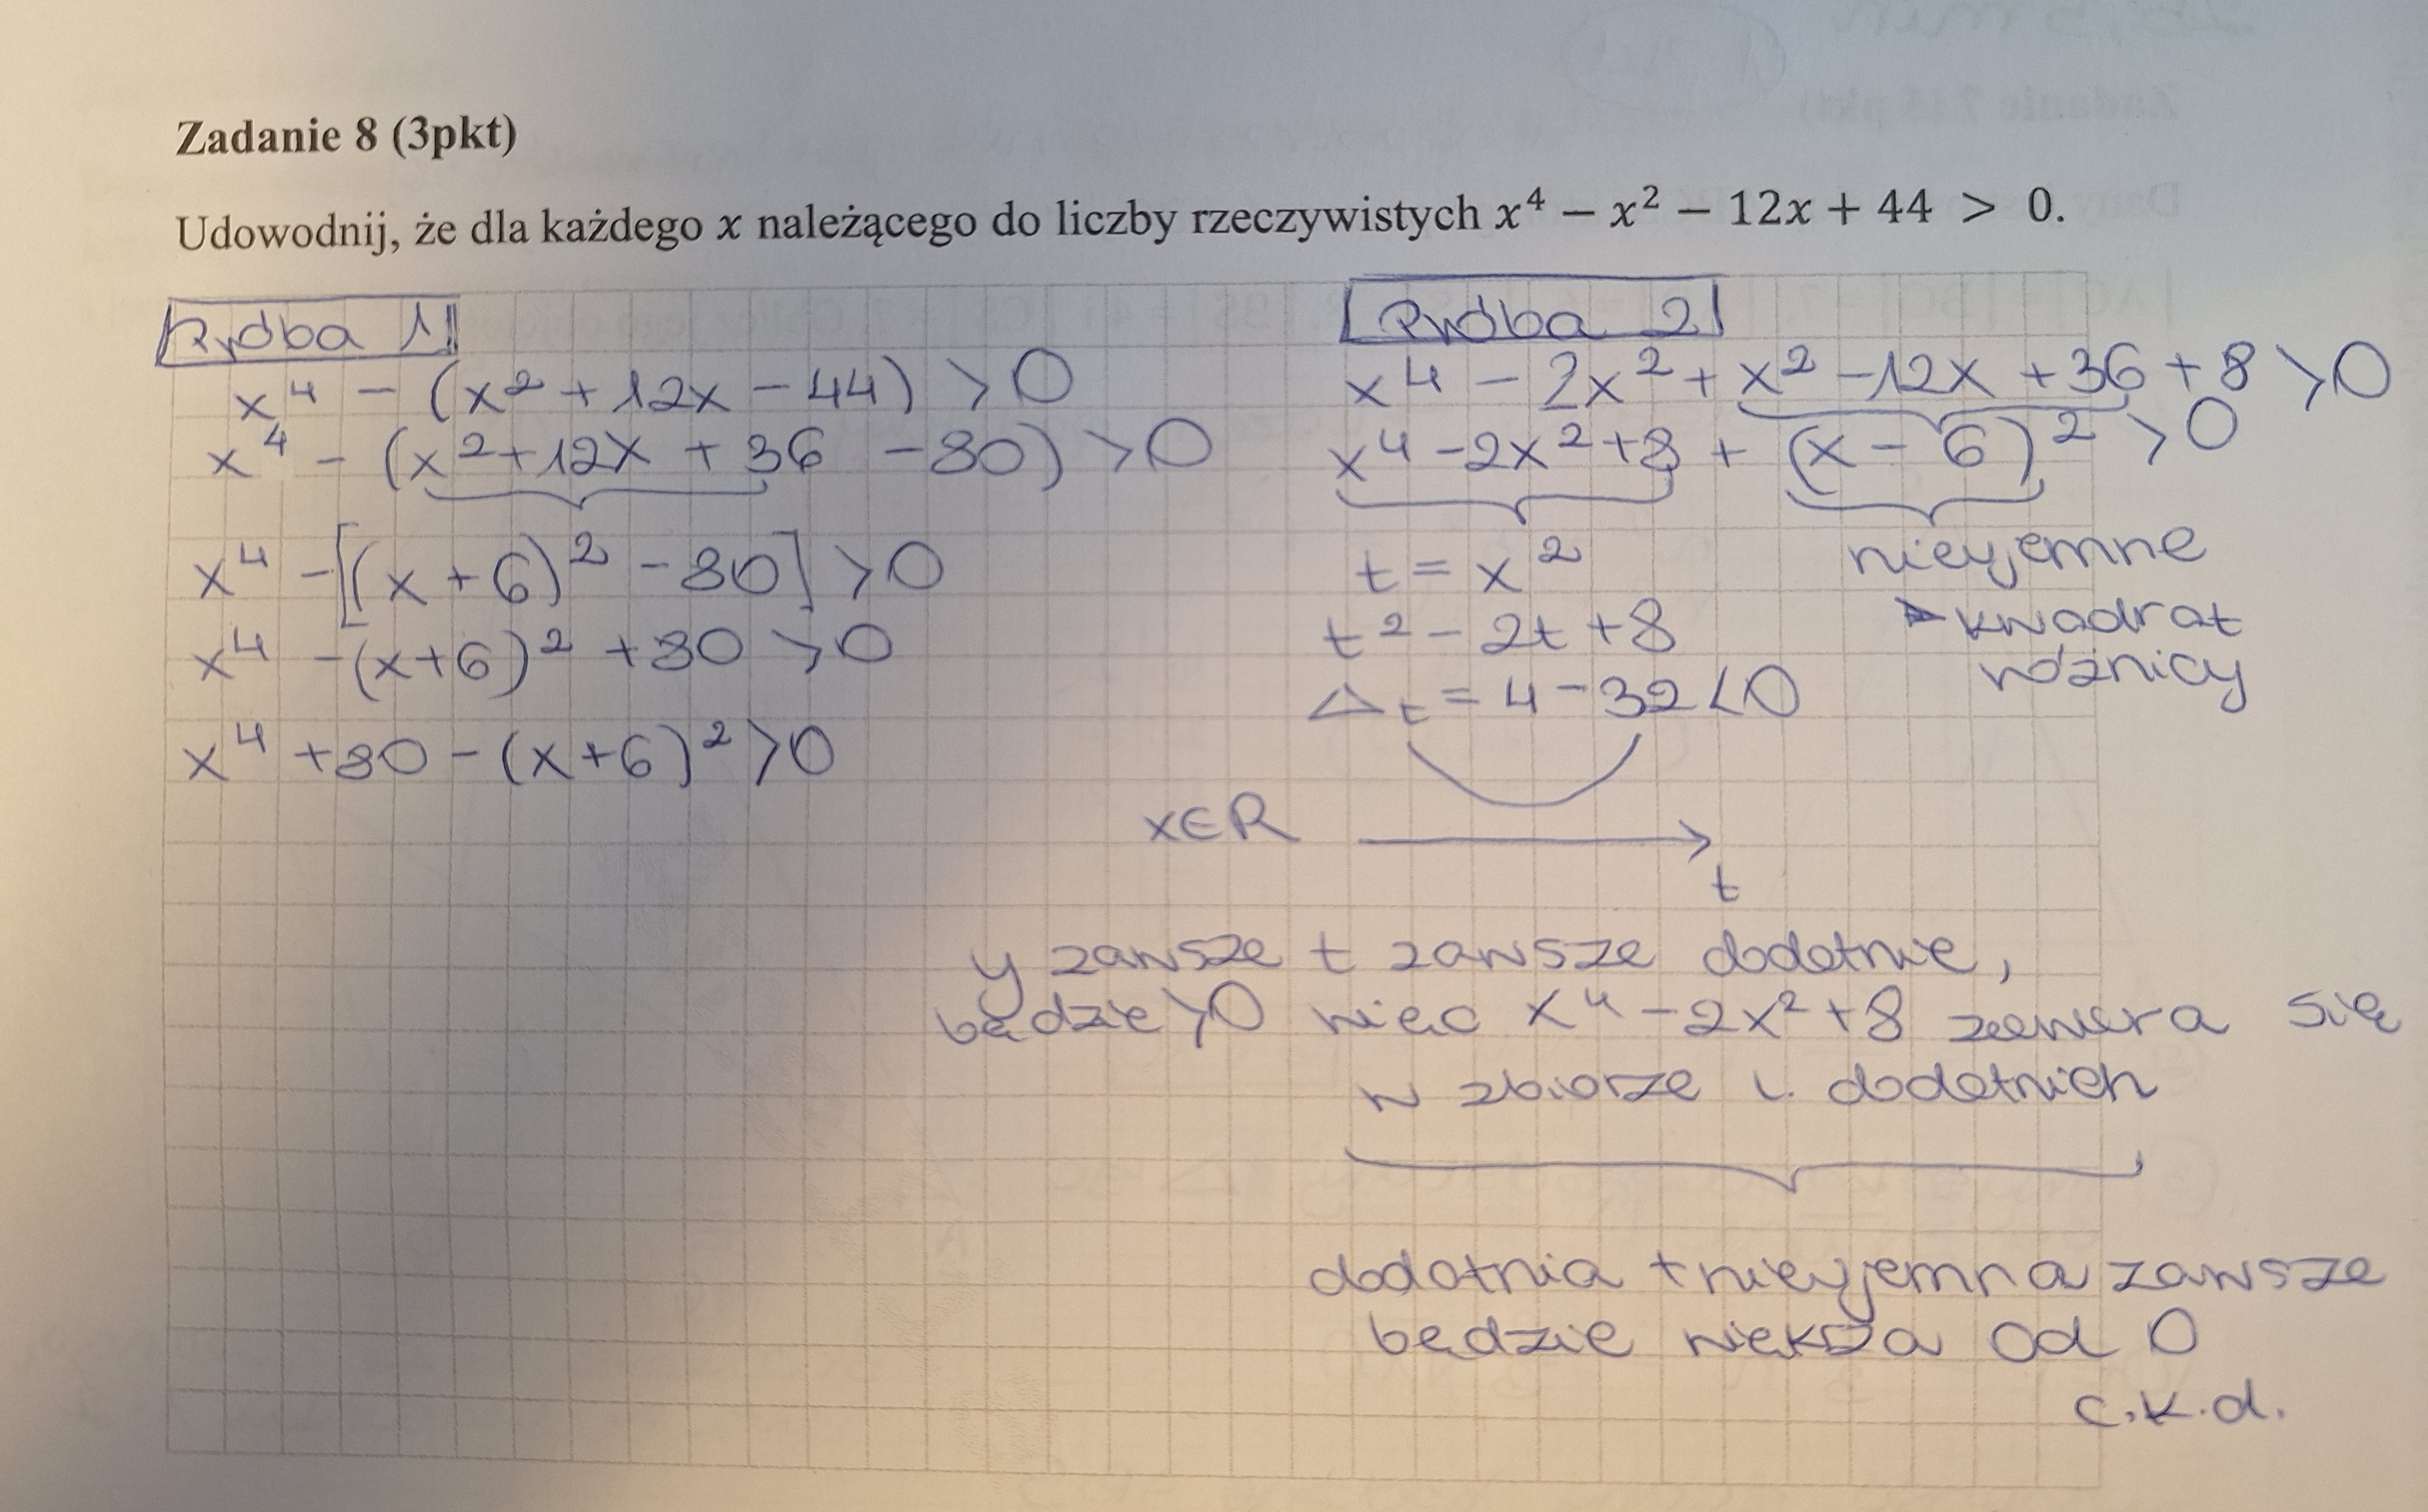 Zadanie 8 (3pkt)
Udowodnij, że dla każdego x należącego do liczby rzeczywistych x⁴ − x² − 12x + 44 > 0.
Próba 1
x⁴ − (x² + 12x − 44) > 0
x⁴ − (x² + 12x + 36 − 80) > 0
x⁴ − [(x + 6)² − 80] > 0
x⁴ − (x+6)² + 80 > 0
x⁴ + 80 − (x+6)² > 0
Próba 2
x⁴ − 2x² + x² − 12x + 36 + 8 > 0
x⁴ − 2x² + 8 + (x − 6)² > 0
nieujemne
kwadrat
różnicy
t = x²
t² − 2t + 8
Δt = 4 − 32 < 0
x∈R
t
y zawsze
będzie >0
t zawsze dodatnie,
więc x⁴ − 2x² + 8 zawiera się
w zbiorze l. dodatnich
dodatnia + nieujemna zawsze
będzie większa od 0
c.k.d.